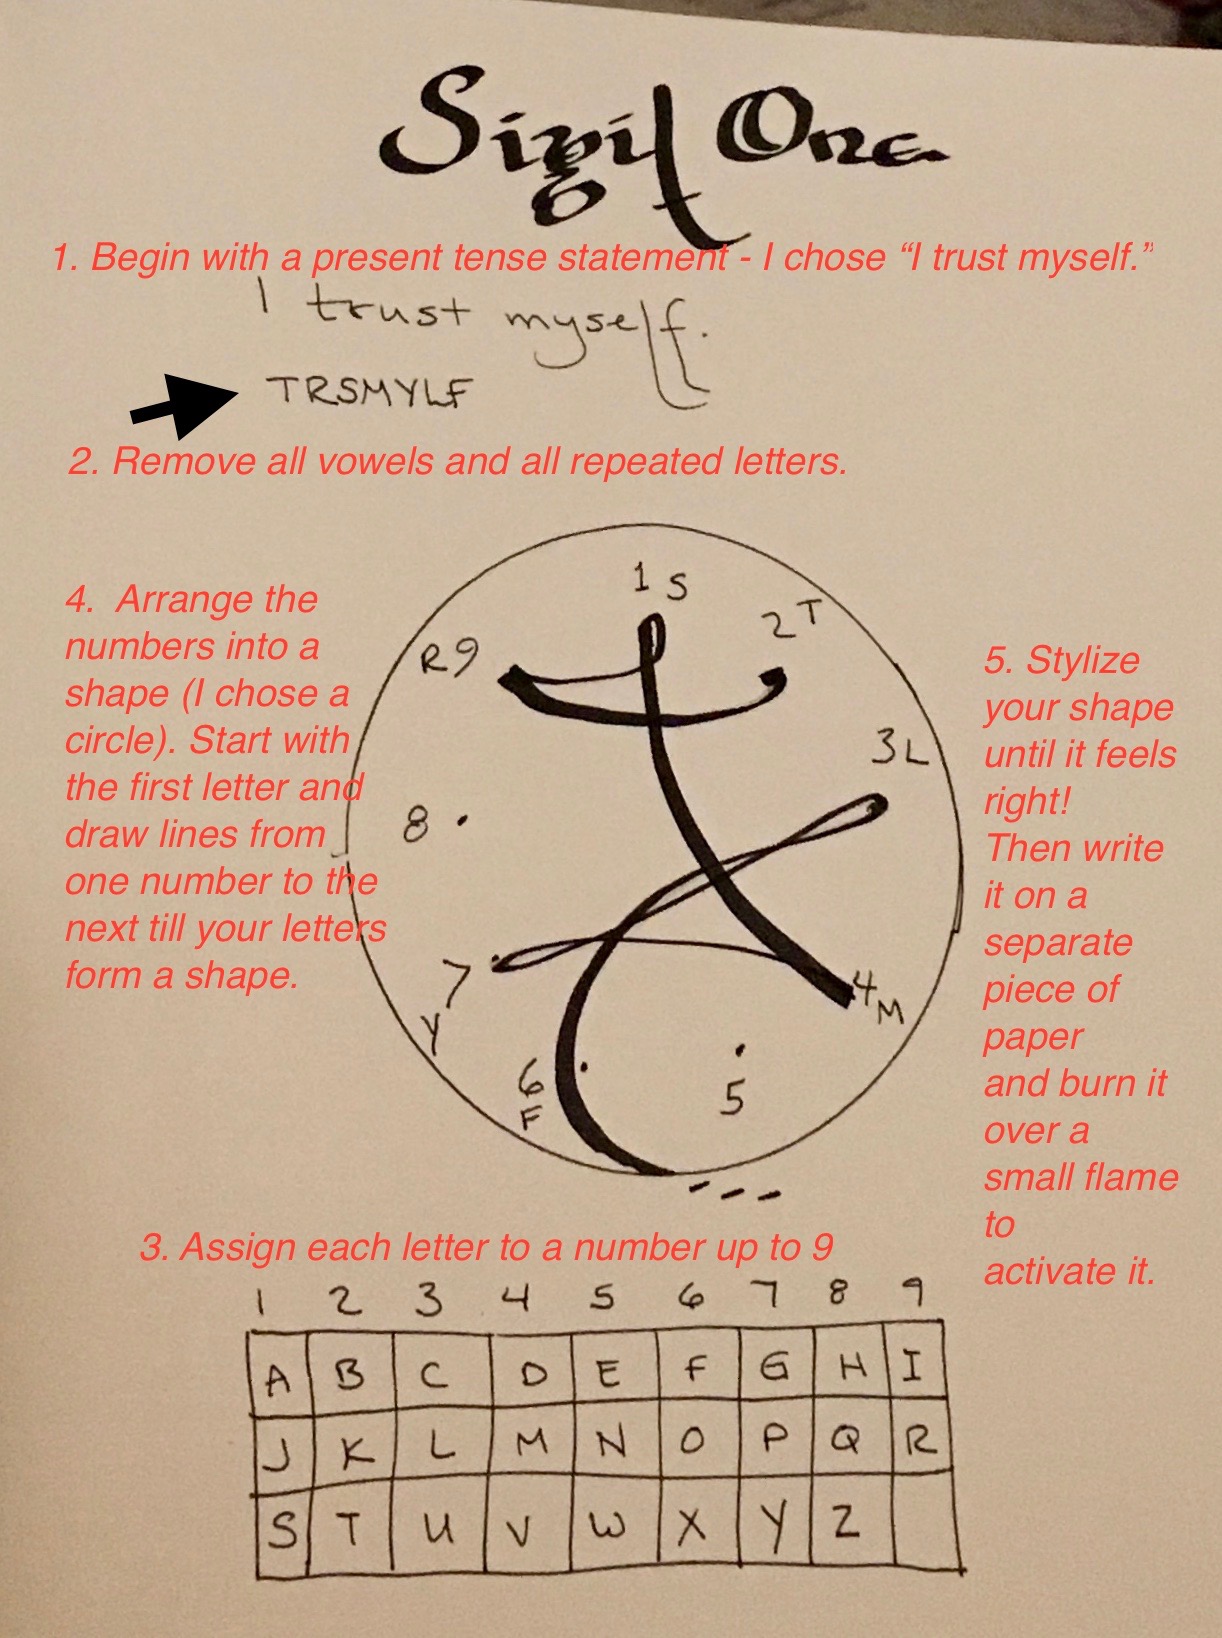 Sigil One
1. Begin with a present tense statement - I chose “I trust myself.”
I trust myself.
TRSMYLF
2. Remove all vowels and all repeated letters.
4. Arrange the
numbers into a
shape (I chose a
circle). Start with
the first letter and
draw lines from
one number to the
next till your letters
form a shape.
1 S
2 T
R 9
3 L
8
7
Y
4 M
6
F
5
5. Stylize
your shape
until it feels
right!
Then write
it on a
separate
piece of
paper
and burn it
over a
small flame
to
activate it.
3. Assign each letter to a number up to 9
1 2 3 4 5 6 7 8 9
A B C D E F G H I
J K L M N O P Q R
S T U V W X Y Z